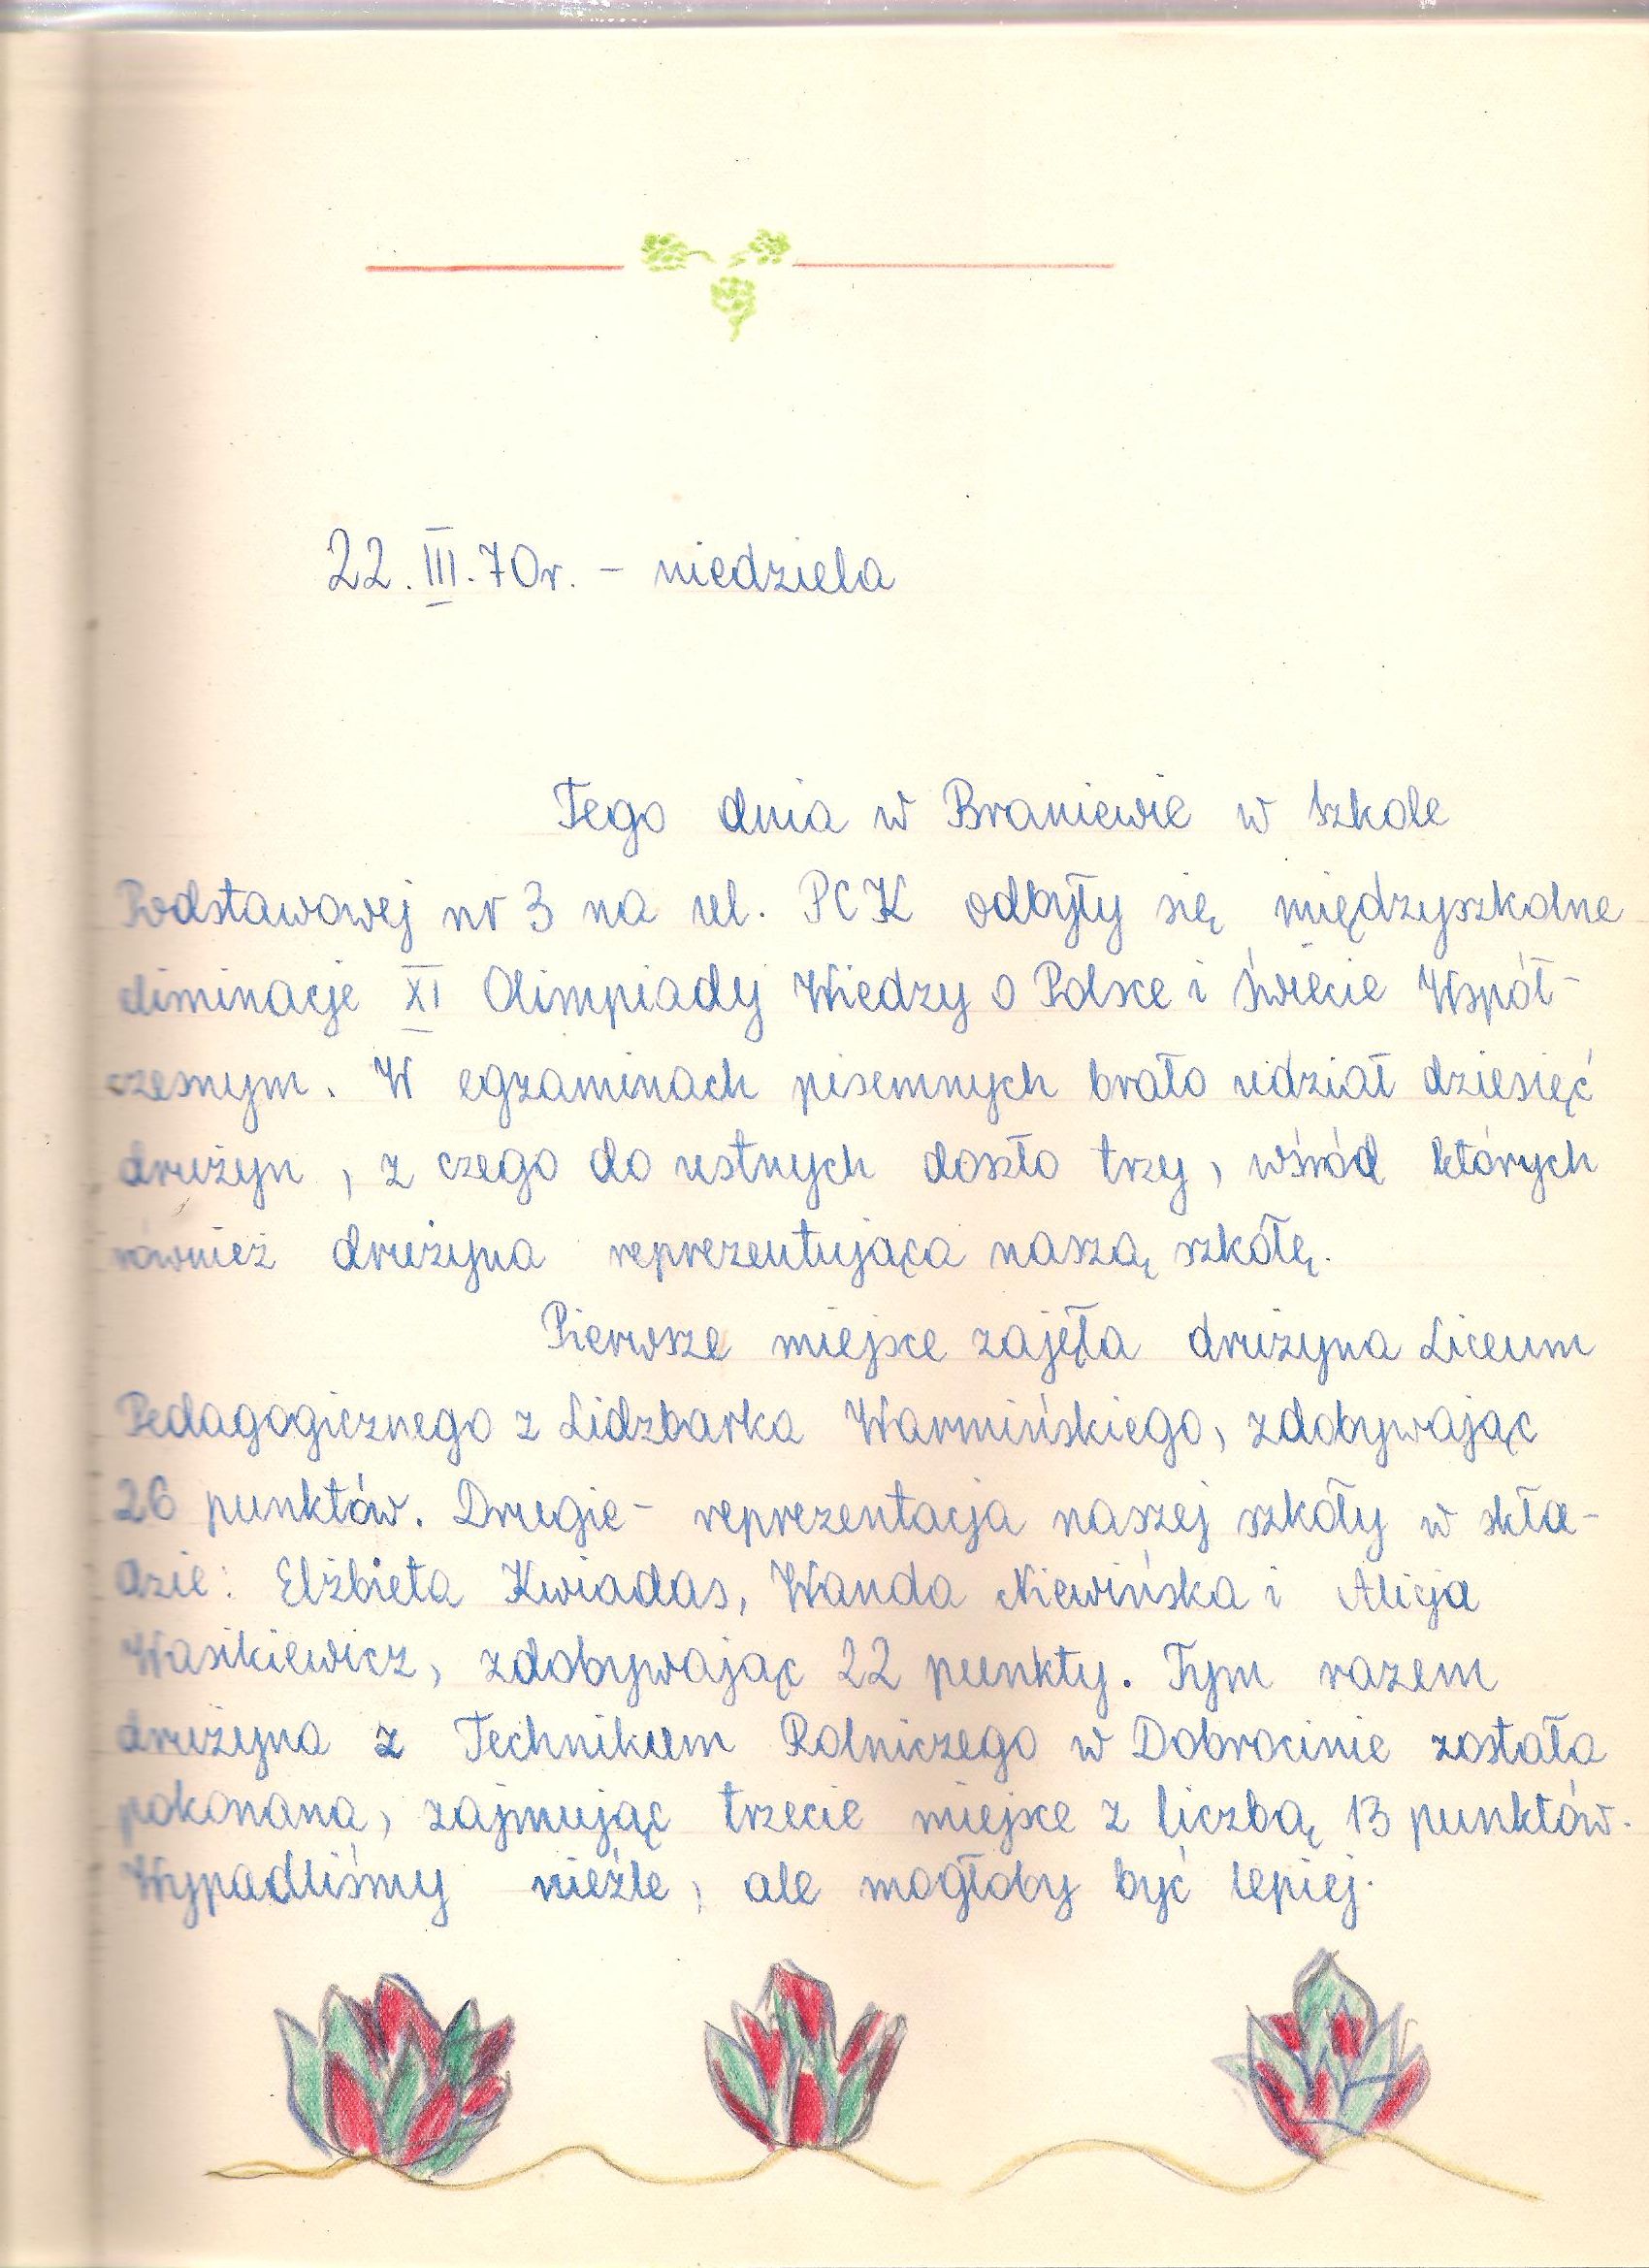 22.III.70r. - niedziela
Tego dnia w Braniewie w Szkole
Podstawowej nr 3 na ul. PCK odbyły się międzyszkolne
eliminacje XI Olimpiady Wiedzy o Polsce i Świecie Współ-
czesnym. W egzaminach pisemnych brało udział dziesięć
drużyn, z czego do ustnych doszło trzy, wśród których
również drużyna reprezentująca naszą szkołę.
Pierwsze miejsce zajęła drużyna Liceum
Pedagogicznego z Lidzbarka Warmińskiego, zdobywając
26 punktów. Drugie - reprezentacja naszej szkoły w skła-
dzie: Elżbieta Kwiadas, Wanda Niewińska i Alicja
Wasikiewicz, zdobywając 22 punkty. Tym razem
drużyna z Technikum Rolniczego w Dobrocinie została
pokonana, zajmując trzecie miejsce z liczbą 13 punktów.
Wypadliśmy nieźle, ale mogłoby być lepiej.